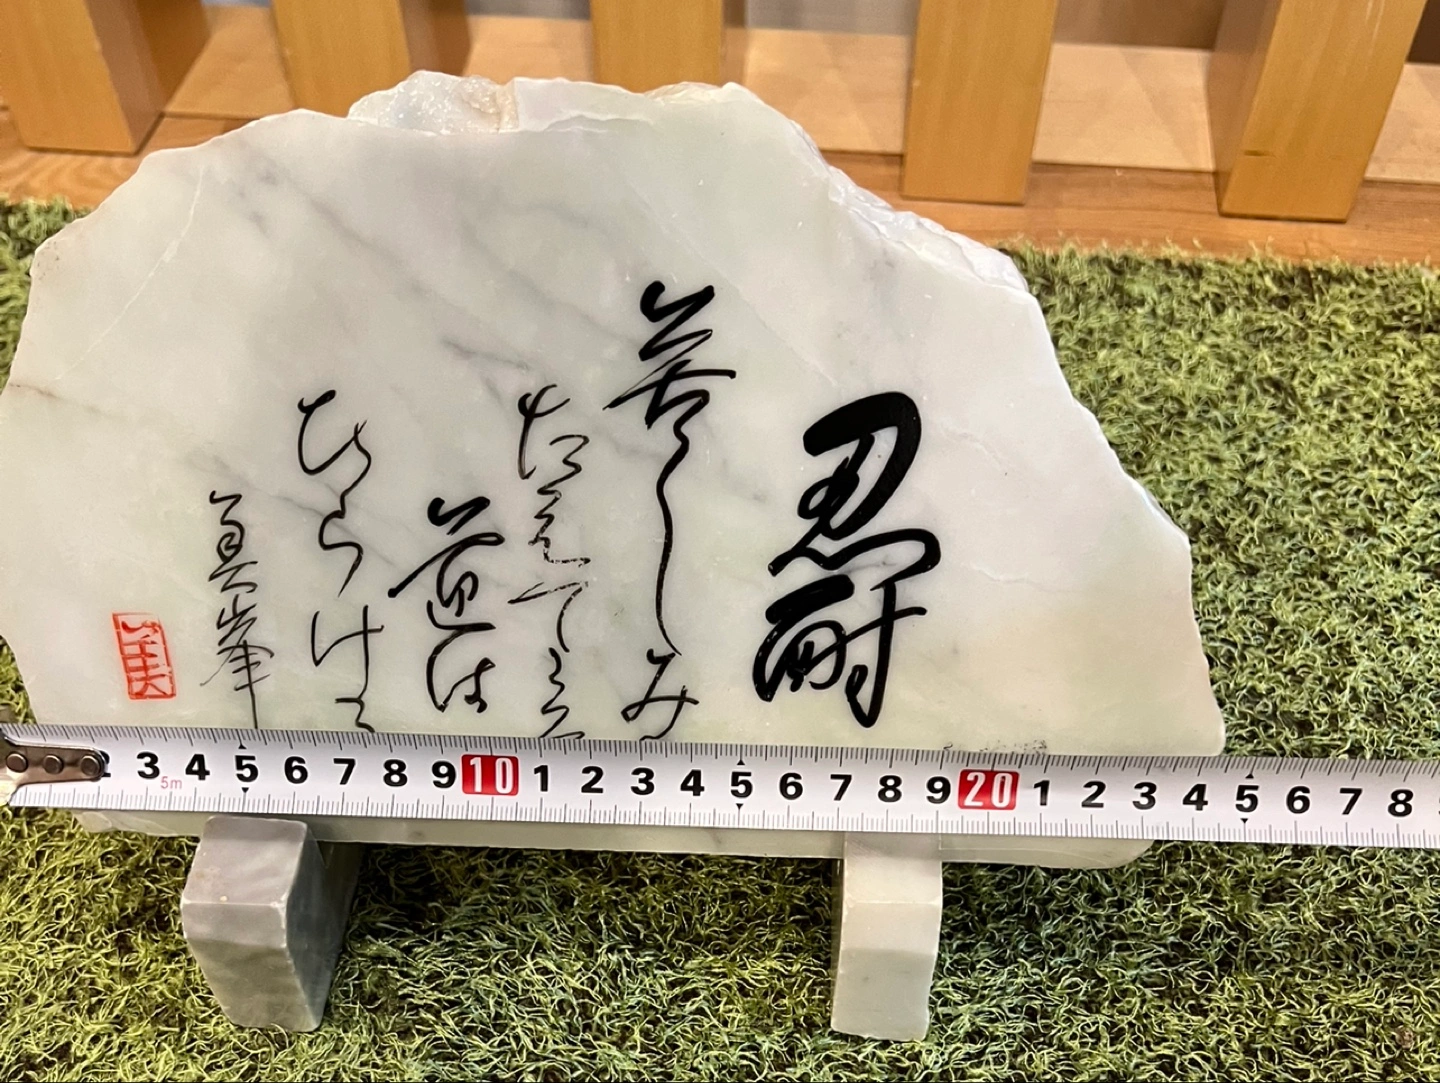 忍耐
苦しみ
たえてこそ
道は
ひらける
真峯
2 3 4 5 6 7 8 9 10 1 2 3 4 5 6 7 8 9 20 1 2 3 4 5 6 7 8
5m